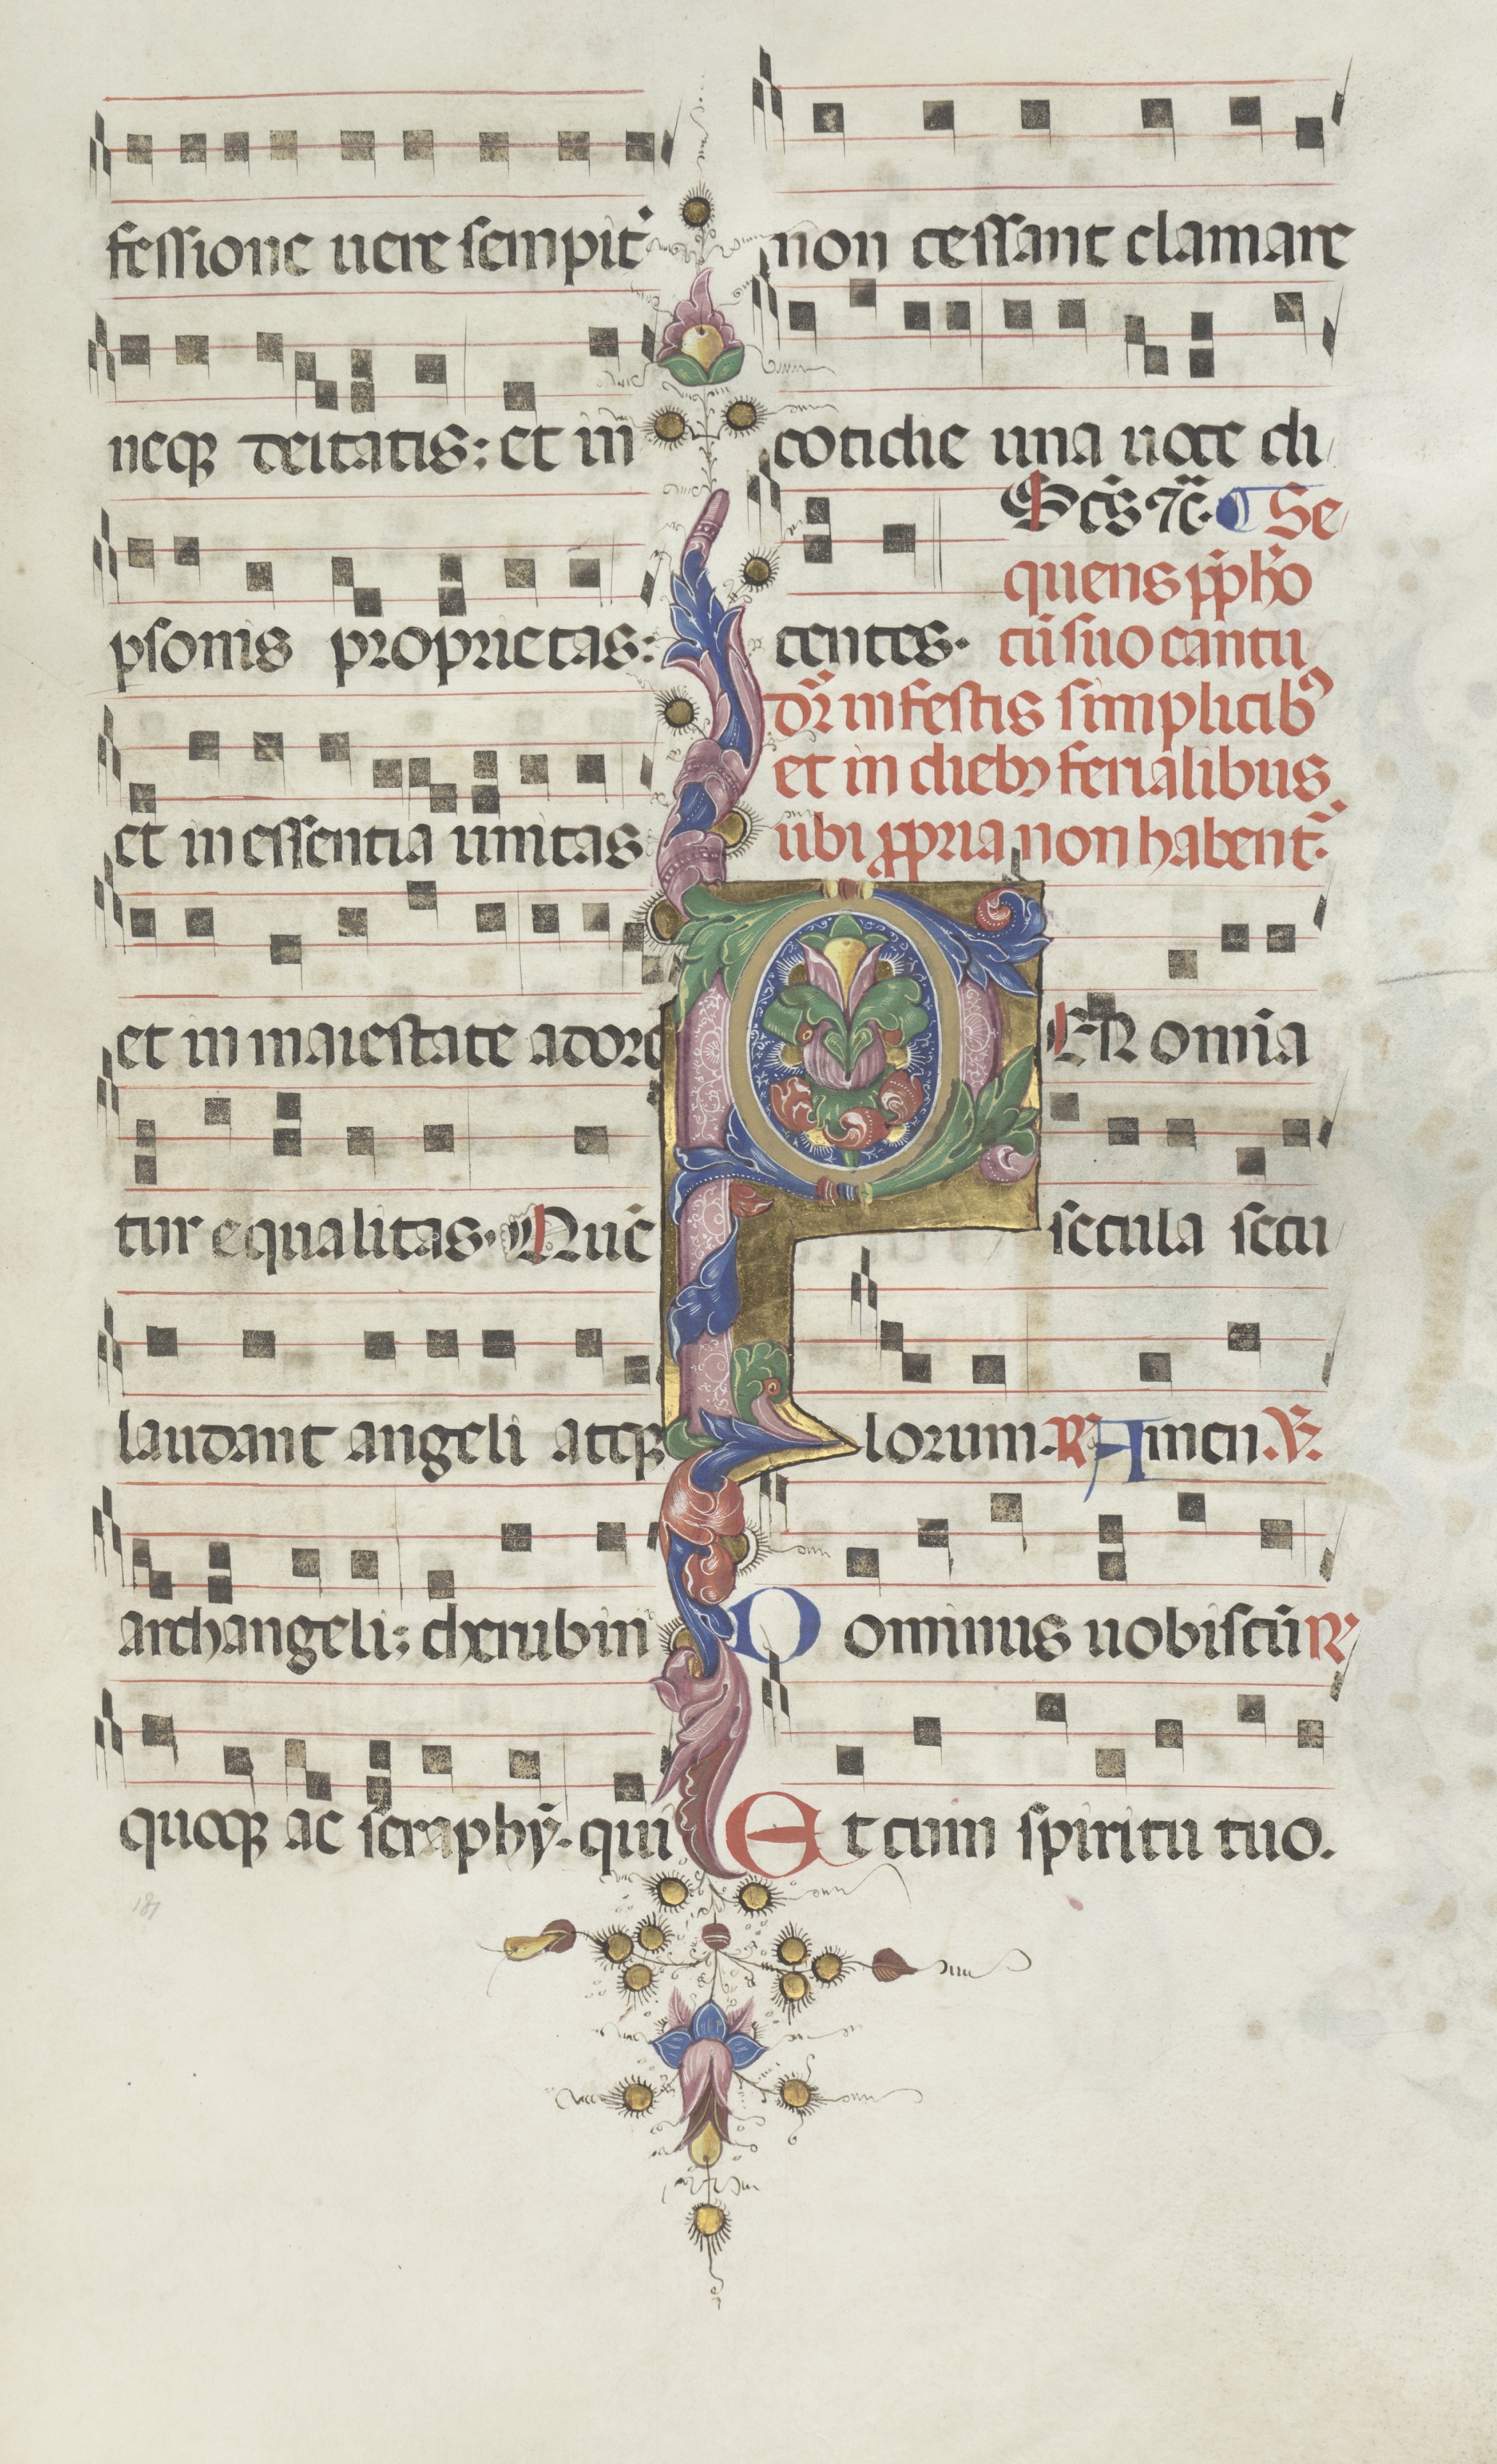 fessione uere sempit
neqꝫ deitatis: et in
psonis proprietas:
et in essentia unitas
et in maiestate adore
tur equalitas. Quē
laudant angeli atqꝫ
archangeli: cherubin
quoqꝫ ac seraphȳ. qui
non cessant clamare
cotidie una uoce di
centes. Sc̄s ⁊c̄. Se
quens p̄pho
cū suo cantu
dr̄ in festis simplicibꝰ
et in diebꝫ ferialibus
ubi ꝓpria non habent̄.
PER omia
secula secu
lorum. ℟ Amen. ℣.
Dominus uobiscū ℟
Et cum spiritu tuo.
181